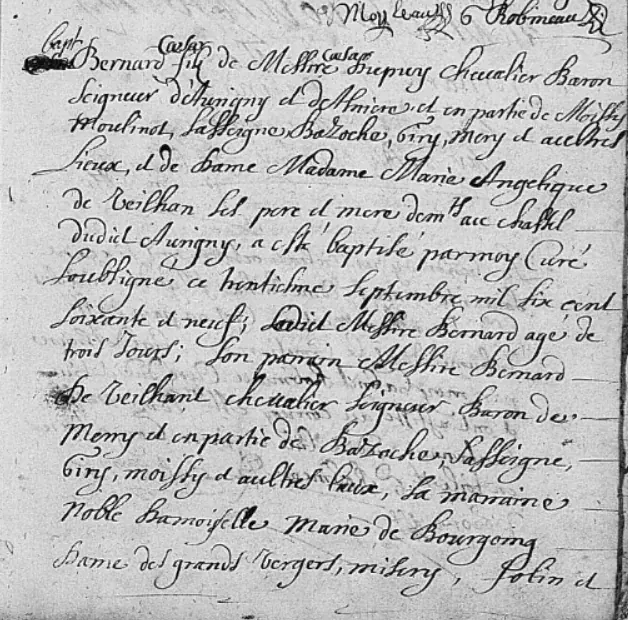 Moyleault 6 Robineau
bapt Caesar Caesar
Bernard filz de Messire Dupuy chevalier Baron
seigneur d'Avrigny et d'Asniere et en partie de Moissy
Moulinot, Lasseigne, Bazoche, Giry, mery et aultres
Lieux, et de dame Madame Marie Angelique
de Veilhan ses pere et mere demts au chastel
dudict Avrigny, a esté baptisé par moy Curé
soubsigné ce trentiesme septembre mil six cent
soixante et neuf; ledict Messire Bernard age de
trois Jours; son parain Messire Bernard
De Veilhant chevalier seigneur Baron de
Merry et en partie de Bazoche, Lasseigne,
Giry, moissy et aultres lieux, sa maraine
Noble damoiselle Marie de Bourgoing
dame des grands vergers, misery, et